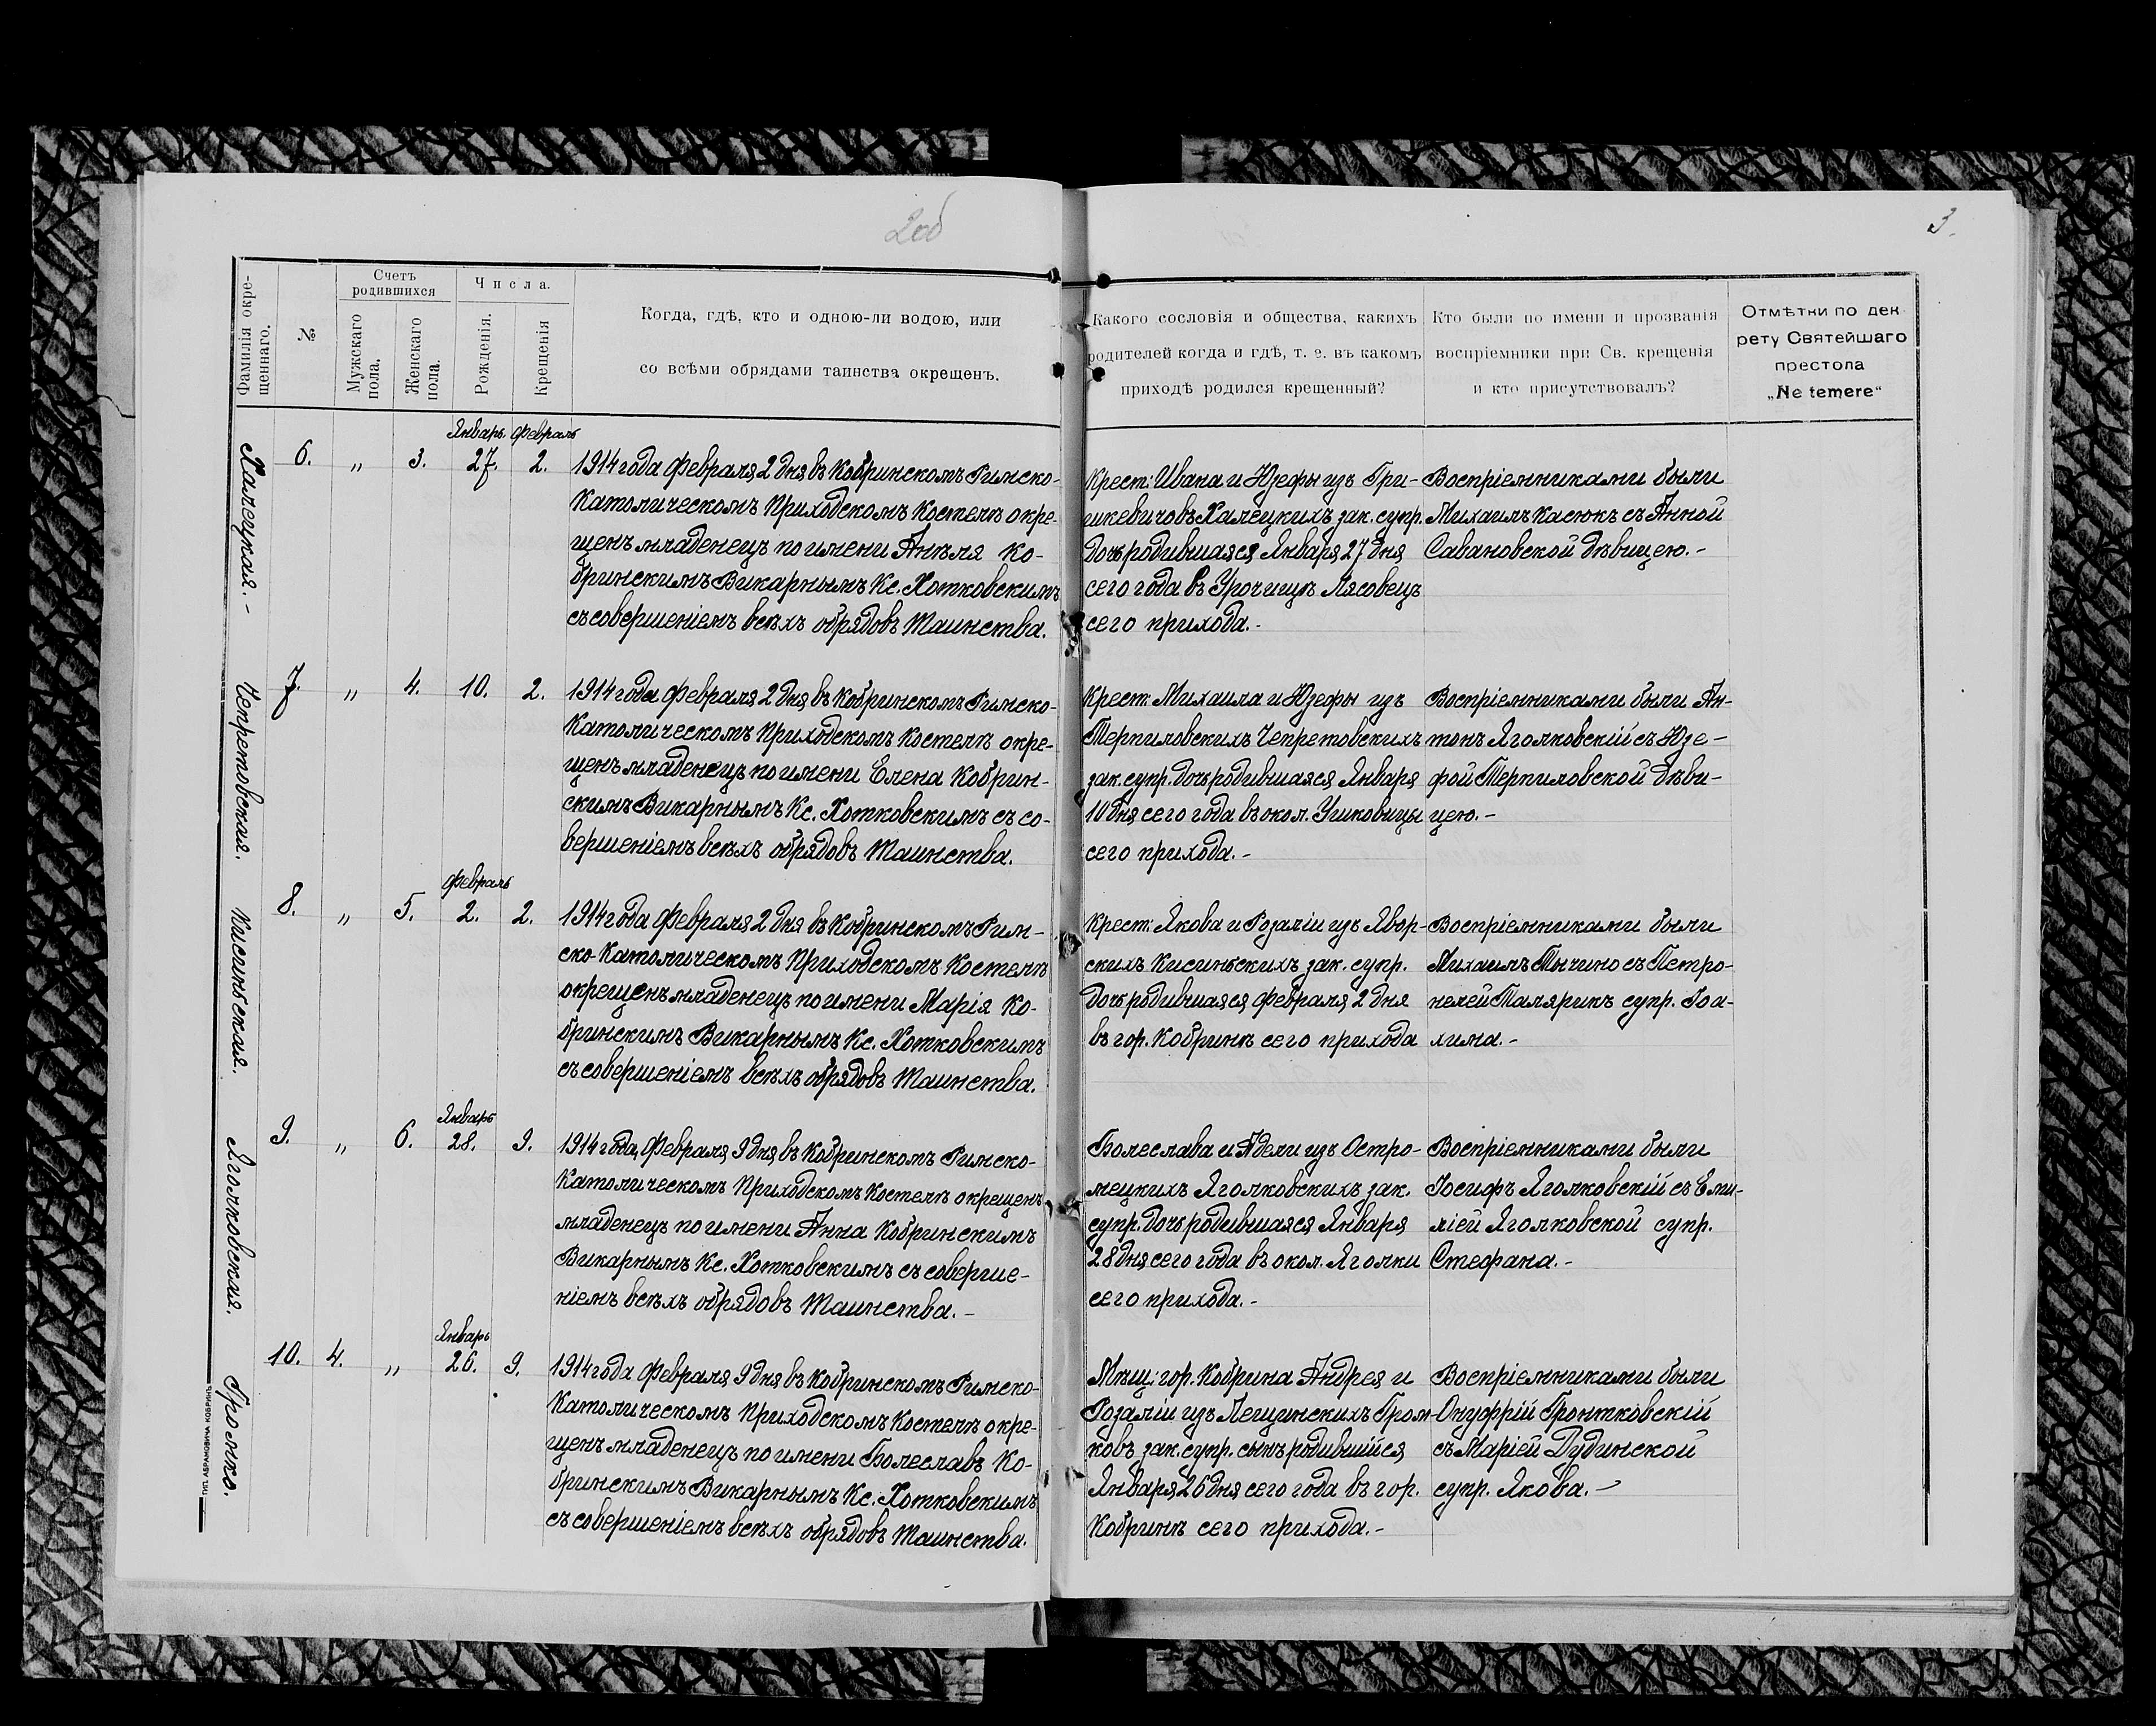 2об
3.
Фамилія окре-
щеннаго.
№
Счетъ
родившихся
Мужскаго
пола.
Женскаго
пола.
Числа.
Рожденія.
Крещенія
Когда, гдѣ, кто и одною-ли водою, или
со всѣми обрядами таинства окрещенъ.
Какого сословія и общества, какихъ
родителей когда и гдѣ, т. е. въ какомъ
приходѣ родился крещенный?
Кто были по имени и прозванія
воспріемники при Св. крещенія
и кто присутствовалъ?
Отмѣтки по дек
рету Святейшаго
престола
„Ne temere“
Халецкая.-
6. „ 3. Январь 27. Февраль 2.
1914 года Февраля 2 дня въ Кобринскомъ Римско-
Католическомъ Приходскомъ Костелѣ окре-
щенъ младенецъ по имени Анѣля Ко-
бринскимъ Викарнымъ Кс. Хотковскимъ
съ совершеніемъ всѣхъ обрядовъ Таинства.
Крест: Ивана и Юзефы изъ Гри-
шкевичовъ Халецкихъ зак. супр.
дочь родившаяся Января 27 дня
сего года въ Урочищѣ Лясовецъ
сего прихода.-
Воспріемниками были
Михаилъ Касюкъ съ Анной
Савановской дѣвицею.-
Чепретовская.
7. „ 4. 10. 2.
1914 года Февраля 2 дня въ Кобринскомъ Римско-
Католическомъ Приходскомъ Костелѣ окре-
щенъ младенецъ по имени Елена Кобрин-
скимъ Викарнымъ Кс. Хотковскимъ съ со-
вершеніемъ всѣхъ обрядовъ Таинства.
Крест: Михаила и Юзефы изъ
Терпиловскихъ Чепретовскихъ
зак. супр. дочь родившаяся Января
10 дня сего года въ окол. Ушковицы
сего прихода.-
Воспріемниками были Ан-
тонъ Яголковскій съ Юзе-
фой Терпиловской дѣви-
цею.-
Кисиньская.
8. „ 5. Февраль 2. 2.
1914 года Февраля 2 дня въ Кобринскомъ Рим-
ско-Католическомъ Приходскомъ Костелѣ
окрещенъ младенецъ по имени Марія Ко-
бринскимъ Викарнымъ Кс. Хотковскимъ
съ совершеніемъ всѣхъ обрядовъ Таинства.
Крест: Якова и Розаліи изъ Явор-
скихъ Кисиньскихъ зак. супр.
дочь родившаяся Февраля 2 дня
въ гор. Кобринѣ сего прихода
Воспріемниками были
Михаилъ Тычино съ Петро-
нелей Талярикъ супр. Іоа-
хима.-
Яголковская.
9. „ 6. Январь 28. 9.
1914 года, Февраля 9 дня въ Кобринскомъ Римско-
Католическомъ Приходскомъ Костелѣ окрещенъ
младенецъ по имени Анна Кобринскимъ
Викарнымъ Кс. Хотковскимъ съ соверше-
ніемъ всѣхъ обрядовъ Таинства.-
Болеслава и Адели изъ Остро-
мецкихъ Яголковскихъ зак.
супр. дочь родившаяся Января
28 дня сего года въ окол. Яголки
сего прихода.-
Воспріемниками были
Іосифъ Яголковскій съ Еми-
ліей Яголковской супр.
Стефана.-
Громко.
10. 4. „ Январь 26. 9.
1914 года Февраля 9 дня въ Кобринскомъ Римско-
Католическомъ Приходскомъ Костелѣ окре-
щенъ младенецъ по имени Болеславъ Ко-
бринскимъ Викарнымъ Кс. Хотковскимъ
съ совершеніемъ всѣхъ обрядовъ Таинства.
Мѣщ: гор. Кобрина Андрея и
Розаліи изъ Лещинскихъ Гром-
ковъ зак. супр. сынъ родившійся
Января 26 дня сего года въ гор.
Кобринѣ сего прихода.-
Воспріемниками были
Онуфрій Гронтковскій
съ Маріей Дудинской
супр. Якова.-
ТИП. АБРАМОВИЧА КОБРИНЪ